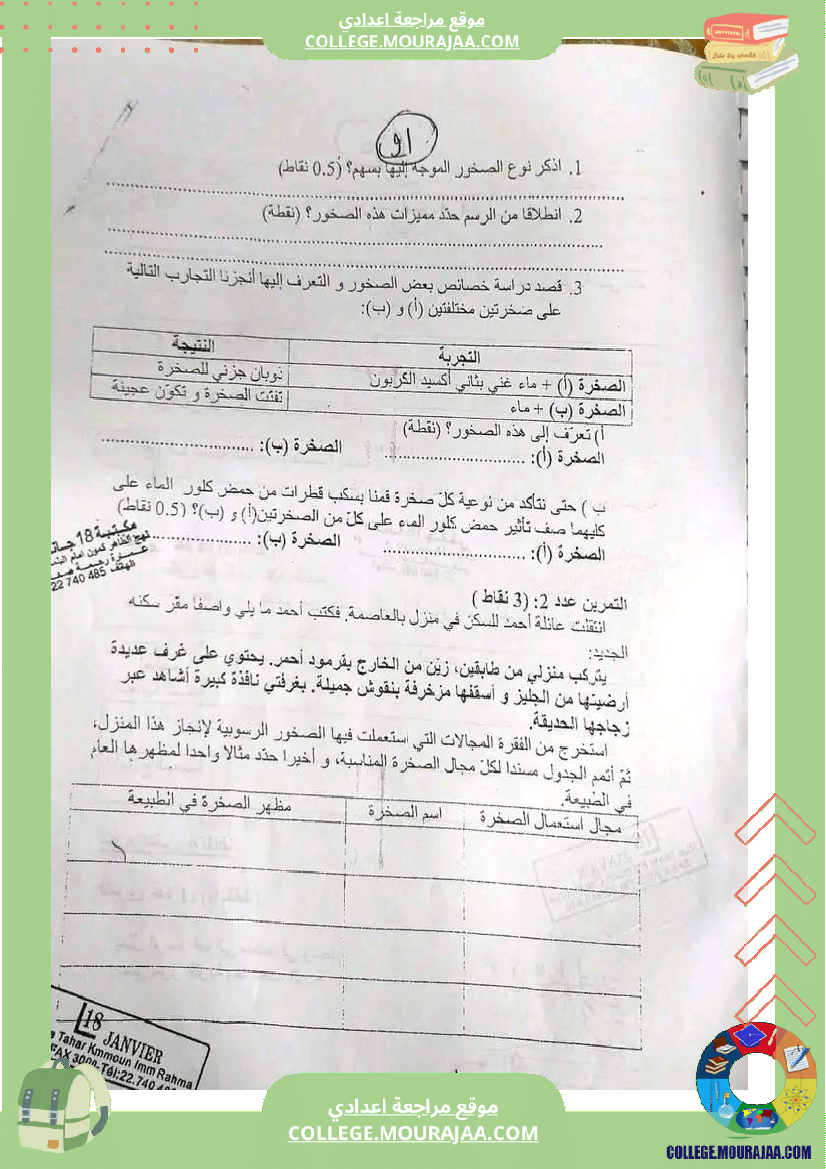 موقع مراجعة اعدادي
COLLEGE.MOURAJAA.COM
1. اذكر نوع الصخور الموجه إليها بسهم؟ (0.5 نقاط)
2. انطلاقا من الرسم حدّد مميزات هذه الصخور؟ (نقطة)
3. قصد دراسة خصائص بعض الصخور و التعرف إليها أنجزنا التجارب التالية
على صخرتين مختلفتين (أ) و (ب):
التجربة النتيجة
الصخرة (أ) + ماء غني بثاني أكسيد الكربون ذوبان جزئي للصخرة
الصخرة (ب) + ماء تفتت الصخرة و تكوّن عجينة
أ) تعرّف إلى هذه الصخور؟ (نقطة)
الصخرة (أ): .............................. الصخرة (ب): ..............................
ب ) حتى نتأكد من نوعية كلّ صخرة قمنا بسكب قطرات من حمض كلور الماء على
كليهما صف تأثير حمض كلور الماء على كلّ من الصخرتين(أ) و (ب)؟ (0.5 نقاط)
الصخرة (أ): .............................. الصخرة (ب): ..............................
مكتبة 18 جا
نهج الطاهر كمون امام
عمارة رحمة
الهاتف 22 740 485
التمرين عدد 2: (3 نقاط )
انتقلت عائلة أحمد للسكن في منزل بالعاصمة. فكتب أحمد ما يلي واصفا مقر سكنه
الجديد:
يتركب منزلي من طابقين، زيّن من الخارج بقرمود أحمر. يحتوي على غرف عديدة
أرضيتها من الجليز و أسقفها مزخرفة بنقوش جميلة. بغرفتي نافذة كبيرة أشاهد عبر
زجاجها الحديقة.
استخرج من الفقرة المجالات التي استعملت فيها الصخور الرسوبية لإنجاز هذا المنزل،
ثمّ أتمم الجدول مسندا لكلّ مجال الصخرة المناسبة، و أخيرا حدّد مثالا واحدا لمظهرها العام
في الطبيعة.
مجال استعمال الصخرة اسم الصخرة مظهر الصخرة في الطبيعة
18 JANVIER
Tahar Kmmoun Imm Rahma
FAX 3000-Tél:22.740
موقع مراجعة اعدادي
COLLEGE.MOURAJAA.COM
COLLEGE.MOURAJAA.COM